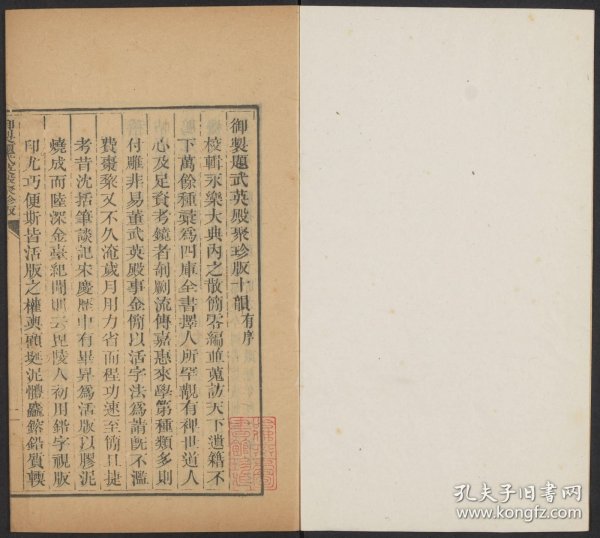 御製題武英殿聚珍版十韻有序
校輯永樂大典內之散簡零編並蒐訪天下遺籍不
下萬餘種彙為四庫全書擇人所罕覯有裨世道人
心及足資考鏡者剞劂流傳嘉惠來學第種類多則
付雕非易董武英殿事金簡以活字法為請旣不濫
費棗棃又不久淹歲月用力省而程功速至簡且捷
考昔沈括筆談記宋慶歷中有畢昇為活版以膠泥
燒成而陸深金臺紀聞則云毘陵人初用鉛字視版
印尤巧便斯皆活版之權輿顧埏泥體麤鎔鉛質輭
御製題武英殿聚珍版
孔夫子旧书网
www.kongfz.com